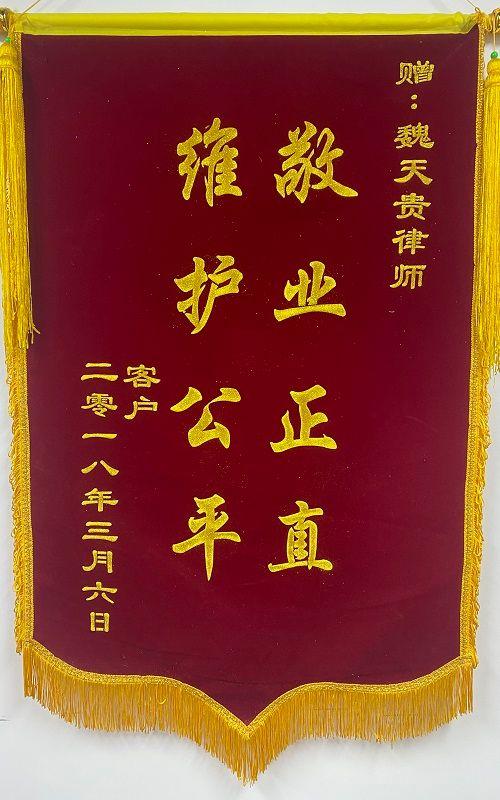 赠：魏天贵律师
敬业正直
维护公平
客户
二零一八年三月六日